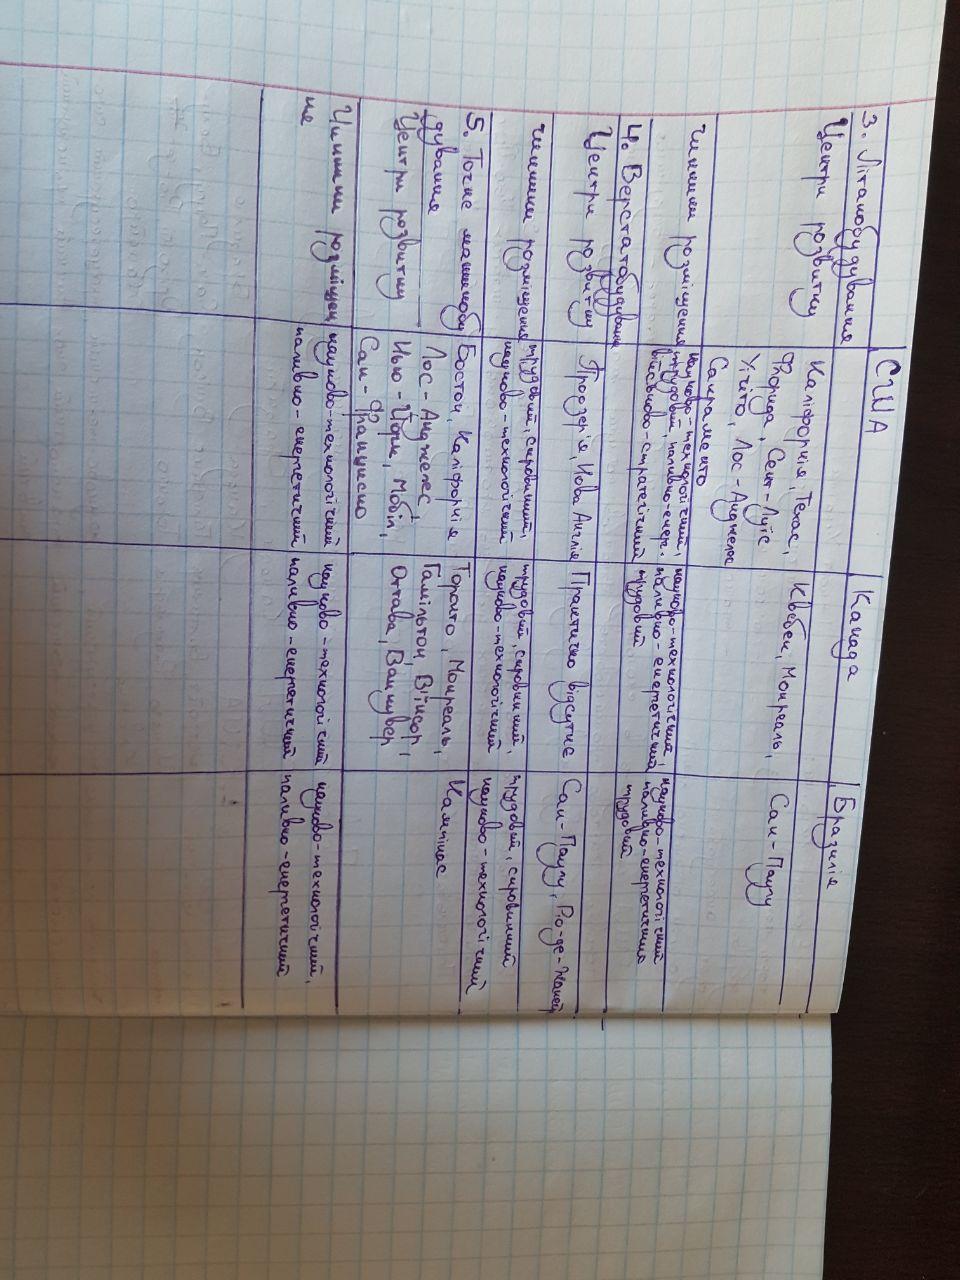 США
Канада
Бразилія
3. Літакобудування
Центри розвитку
Каліфорнія, Техас,
Флорида, Сент-Луїс
Уічіто, Лос-Анджелес
Сакраменто
Квебек, Монреаль,
Сан-Паулу
чинники розміщення
науково-технологічний,
трудовий, паливно-енер.
військово-стратегічний
науково-технологічний,
паливно-енергетичний
трудовий
науково-технологічний
паливно-енергетичний
трудовий
4. Верстатобудування
Центри розвитку
Приозер'я, Нова Англія
Практично відсутнє
Сан-Паулу, Ріо-де-Жаней
чинники розміщення
трудовий, сировинний,
науково-технологічний
трудовий, сировинний,
науково-технологічний
трудовий, сировинний
науково-технологічний
5. Точне машинобу
дування
Центри розвитку
Бостон, Каліфорнія
Лос-Анджелес,
Нью-Йорк, Мобіл,
Сан-Франциско
Торонто, Монреаль,
Гамільтон, Віїнсор,
Оттава, Ванкувер
Кампінас
Чинники розміщен
не
науково-технологічний
паливно-енергетичний
науково-технологічний
паливно-енергетичний
науково-технологічний,
паливно-енергетичний